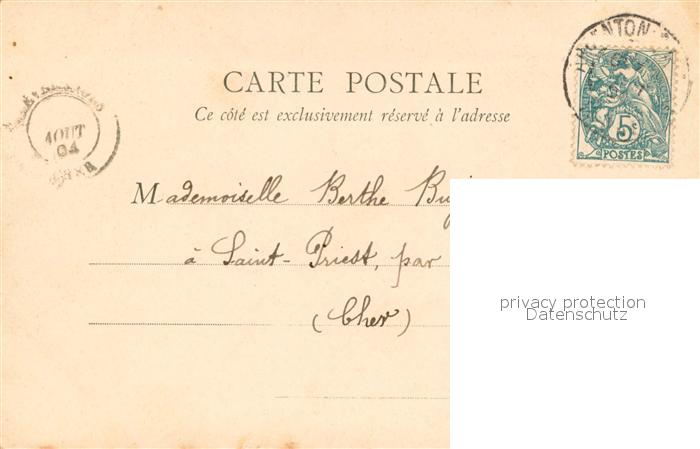 CARTE POSTALE
Ce côté est exclusivement réservé à l'adresse
AOUT
04
5c
POSTES
Mademoiselle Berthe
à Saint-Priest, par
(Cher)
privacy protection
Datenschutz